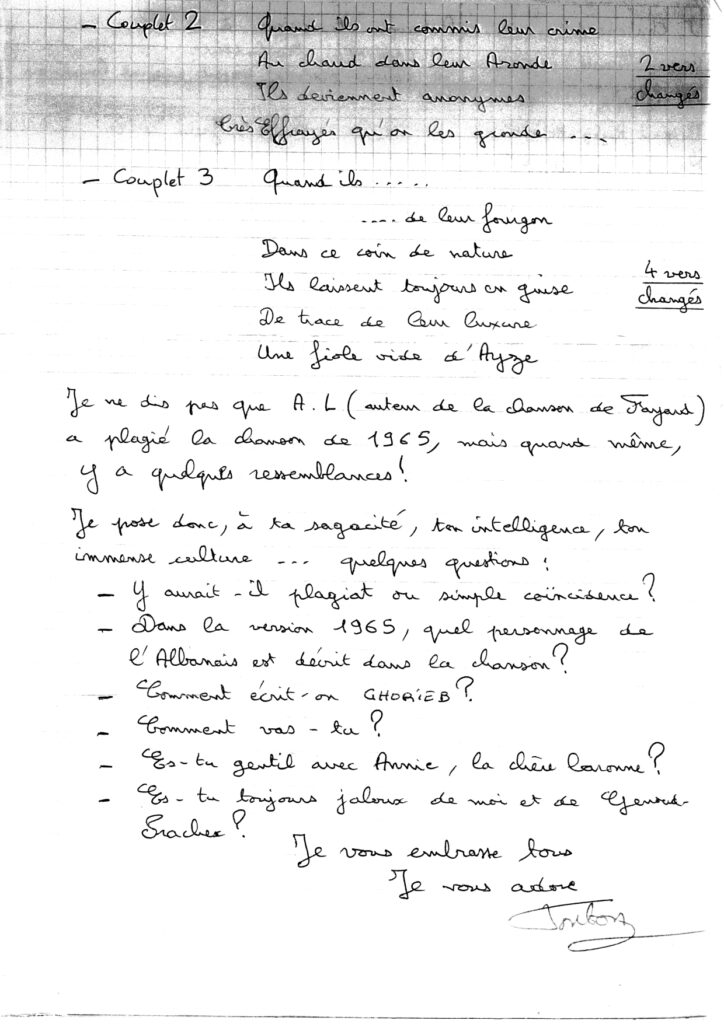 - Couplet 2 Quand ils ont commis leur crime
Au chaud dans leur Aronde 2 vers
Ils deviennent anonymes changés
très Effrayés qu'on les gronde ...
- Couplet 3 Quand ils .....
.... de leur fourgon
Dans ce coin de nature
Ils laissent toujours en guise 4 vers
De trace de leur luxure changés
Une fiole vide d'Ayze
Je ne dis pas que A.L (auteur de la chanson de Fayard)
a plagié la chanson de 1965, mais quand même,
Y a quelques ressemblances !
Je pose donc, à ta sagacité, ton intelligence, ton
immense culture ... quelques questions :
- Y aurait-il plagiat ou simple coïncidence ?
- Dans la version 1965, quel personnage de
l'Albanais est décrit dans la chanson ?
- Comment écrit-on GHORIEB ?
- Comment vas-tu ?
- Es-tu gentil avec Annie, la chère baronne ?
- Es-tu toujours jaloux de moi et de Genoud-
Prachex ?
Je vous embrasse tous
Je vous adore